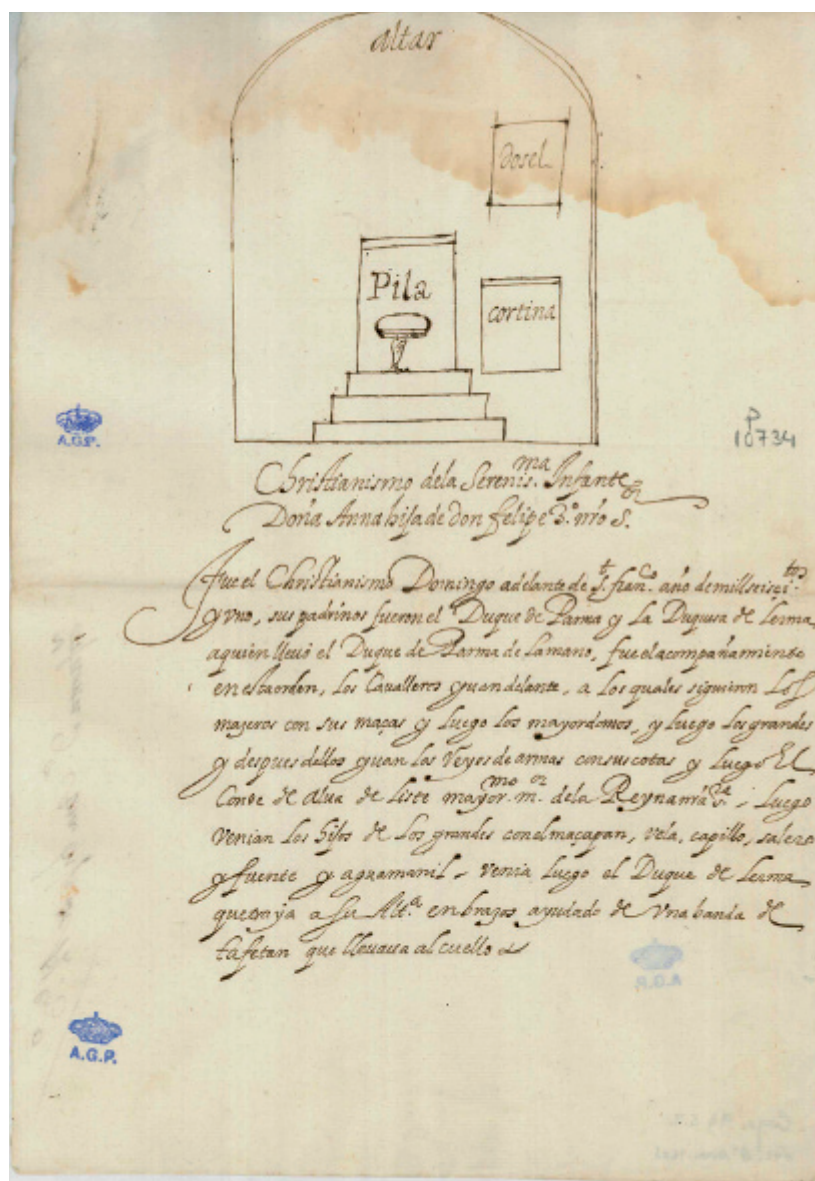 altar
dosel
Pila
cortina
A.G.P.
P
10734
Christianismo dela Sereniss.ma Infante
Doña Anna hija de don felipe 3.º nr̃o S.
fue el Christianismo Domingo adelante de S.t fran.co año de mill seisçi.tos
y vno, sus padrinos fueron el Duque de Parma y La Duquesa de Lerma
aquien lleuó el Duque de Parma de la mano, fue el acompañamiento
en esta orden, Los Caualleros yuan delante, a los quales siguieron Los
maçeros con sus maças y luego los mayordomos, y luego los grandes
y despues dellos yuan los Reyes de armas con sus cotas y luego El
Conde de Alua de liste mayor.mo m.or dela Reyna nr̃a s.ra, Luego
Venian Los hijos de Los grandes con el maçapan, vela, capillo, salero
y fuente y aguamanil, venia luego el Duque de Lerma
que traya a su Alt.a en brazos ayudado de vna banda de
tafetan que lleuaua al cuello
A.G.P.
A.G.P.